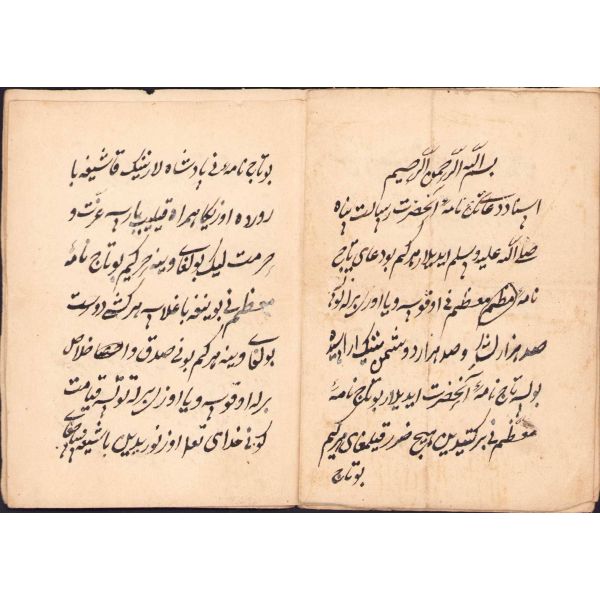 بسم الله الرحمن الرحيم
اسناد دعای تاج نامهٔ آنحضرت رسالت پناه
صلی الله علیه وسلم ایدیلار هرکم بو دعای تاج
نامهٔ معظم نی اوقوب ویا اوزی برله
صد هزار و صد هزار دوشمن نینک اراسیده
بولسه تاج نامهٔ آنحضرت ایدیلار بو تاج نامهٔ
معظم نی برکتیدین هیچ ضرر قیلمغای هرکیم
بو تاج
بو تاج نامه نی پادشاه لارنینک قاشیغه با
رورده اوزیکا همراه قیلیب بارسه عزت و
حرمت لیک بولغای وینه هرکیم بو تاج نامهٔ
معظم نی بوینیغه باغلاسه هر کشی دوست
بولغای وینه هرکم بونی صدق و اخلاص
برله اوقوسه ویا اوزی برله توتسه قیامت
کونی خدای تعالی اوز نوریدین باشیغه